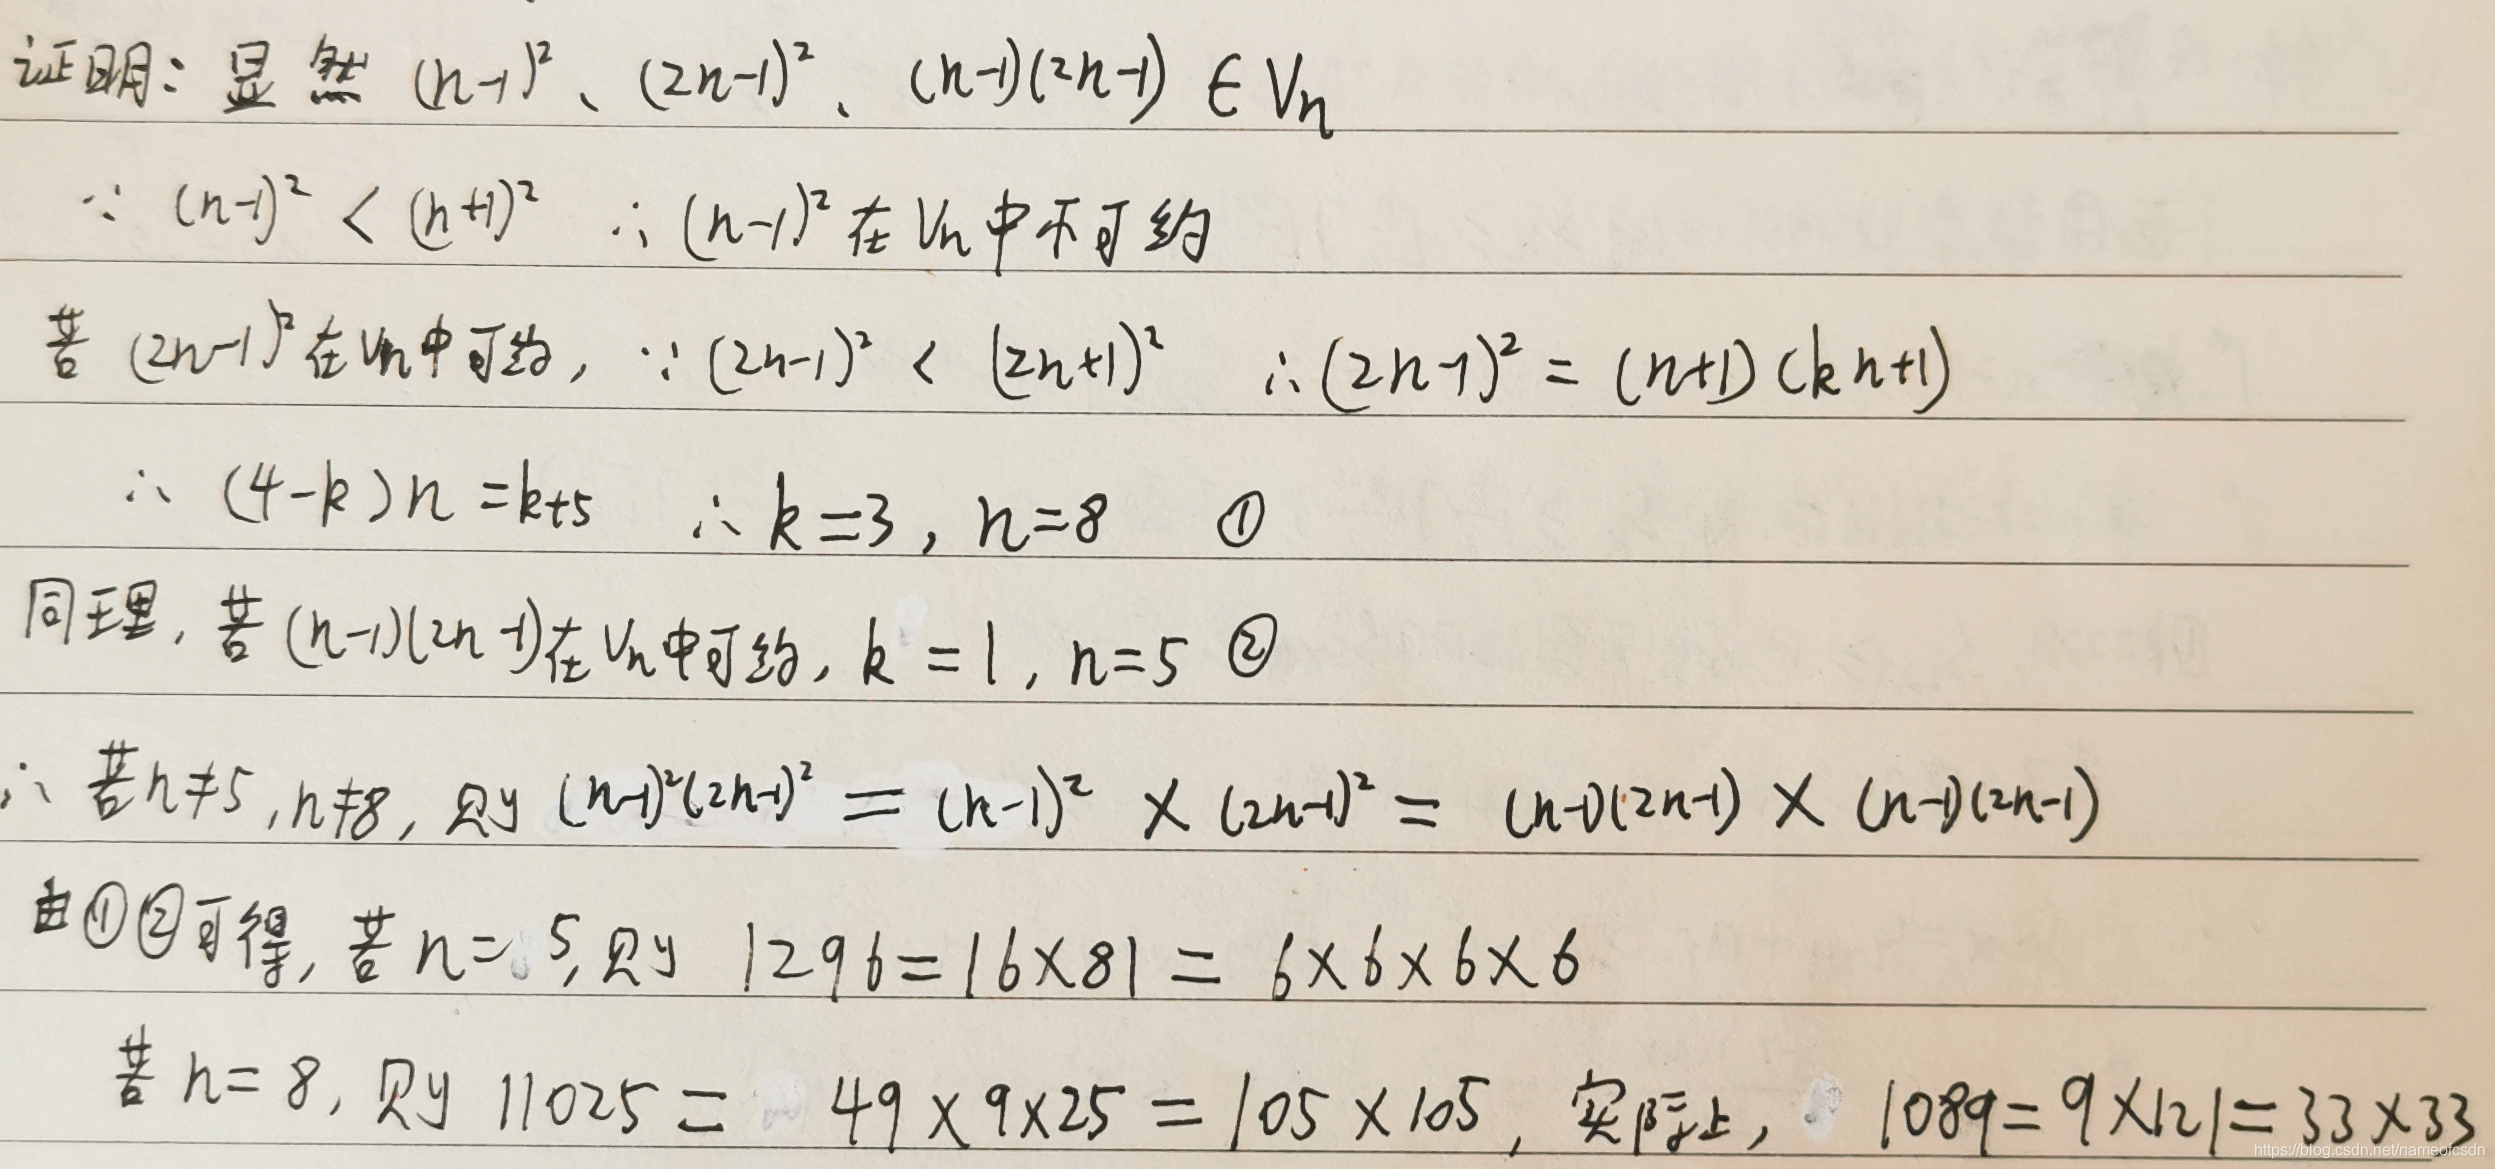 证明：显然 (n-1)²、(2n-1)²、(n-1)(2n-1) ∈ Vn
∵ (n-1)² < (n+1)² ∴ (n-1)² 在 Vn 中不可约
若 (2n-1)² 在 Vn 中可约，∵ (2n-1)² < (2n+1)² ∴ (2n-1)² = (n+1)(kn+1)
∴ (4-k)n = k+5 ∴ k=3，n=8 ①
同理，若 (n-1)(2n-1) 在 Vn 中可约，k=1，n=5 ②
∴ 若 n≠5，n≠8，则 (n-1)²(2n-1)² = (n-1)² × (2n-1)² = (n-1)(2n-1) × (n-1)(2n-1)
由①②可得，若 n=5，则 1296=16×81=6×6×6×6
若 n=8，则 11025=49×9×25=105×105，实际上，1089=9×121=33×33
https://blog.csdn.net/nameofcsdn